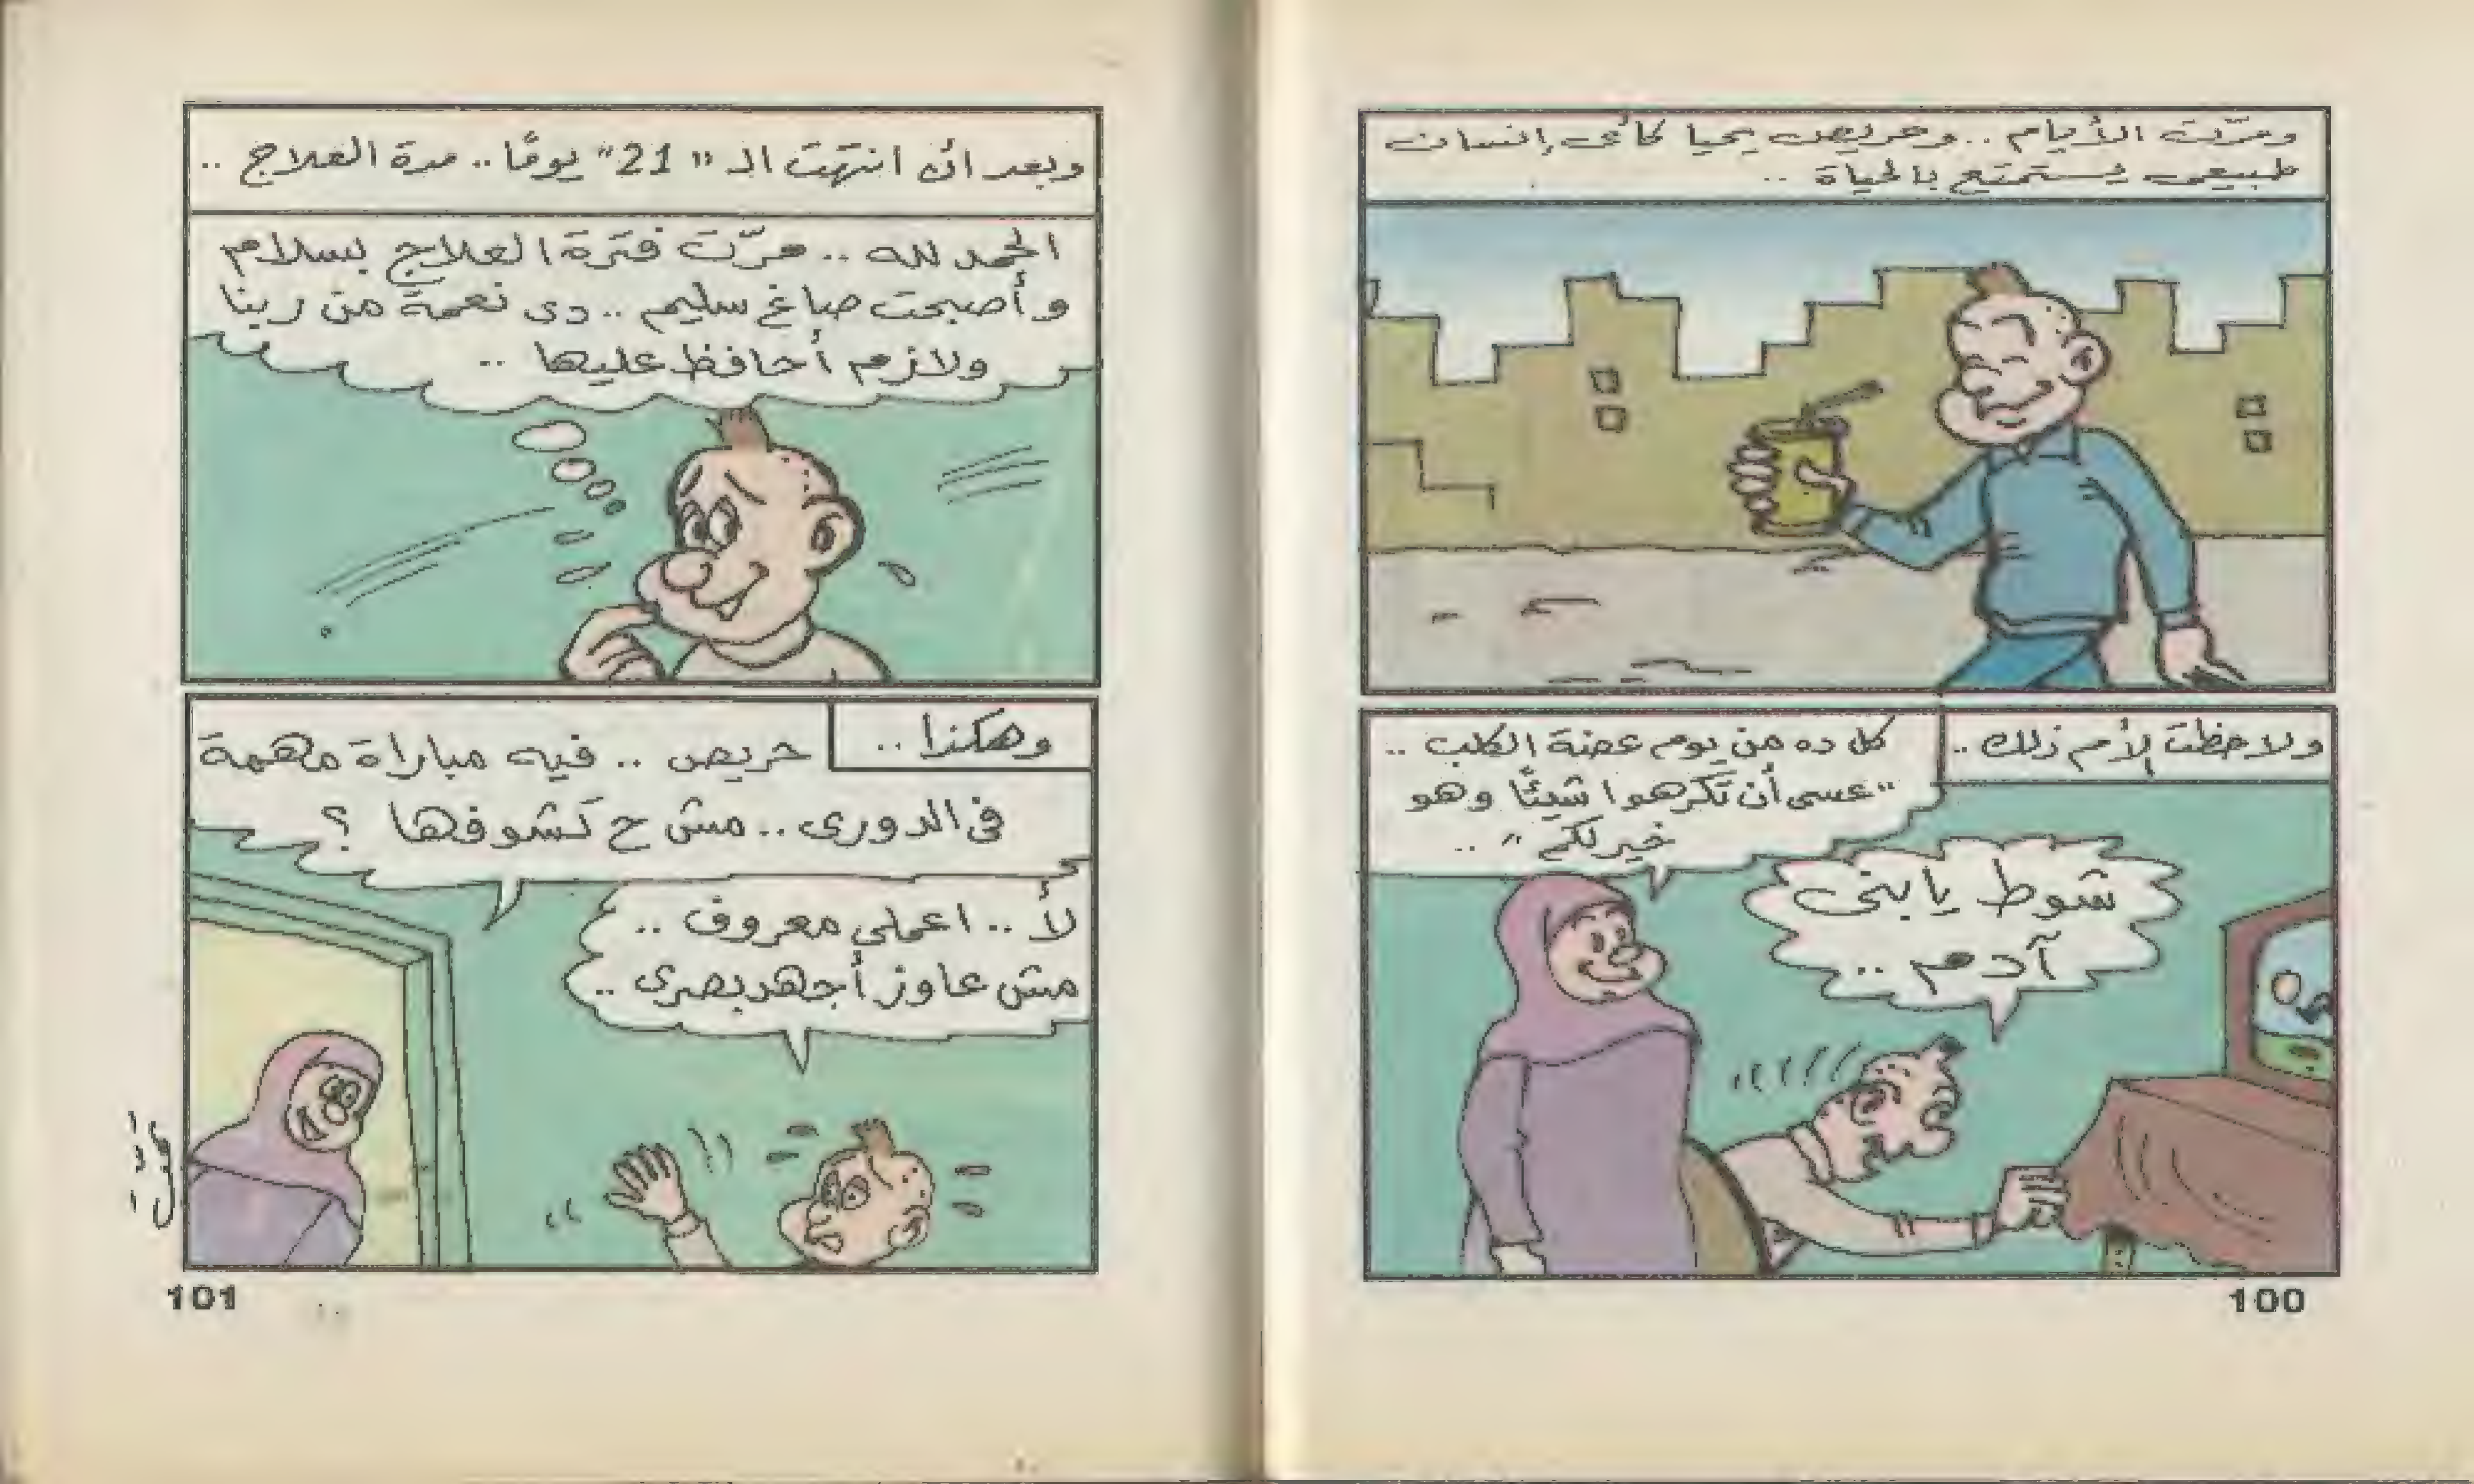 ومرّت الأيام .. وحريص يحيا كأى إنسان
طبيعى يستمتع بالحياة ..
ولاحظت الأم ذلك ..
كل ده من يوم عضة الكلب ..
"عسى أن تكرهوا شيئًا وهو
خير لكم" ..
شوط يا بنى
آدم ..
100
وبعد أن انتهت الـ "21" يومًا .. مدة العلاج ..
الحمد لله .. مرّت فترة العلاج بسلام
وأصبحت صاغ سليم .. دى نعمة من ربنا
ولازم أحافظ عليها ..
وهكذا ..
حريص .. فيه مباراة مهمة
فى الدورى .. مش ح تشوفها ؟
لأ .. اعملى معروف ..
مش عاوز أجهد بصرى ..
101